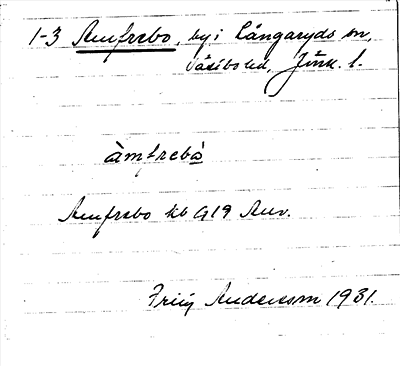 1-3 Amfrabo, by i Långaryds sn,
Västbo hd, Jönk. l.
àmfrabò
Amfrabo hb G19 Anv.
Frid Andersson 1931.